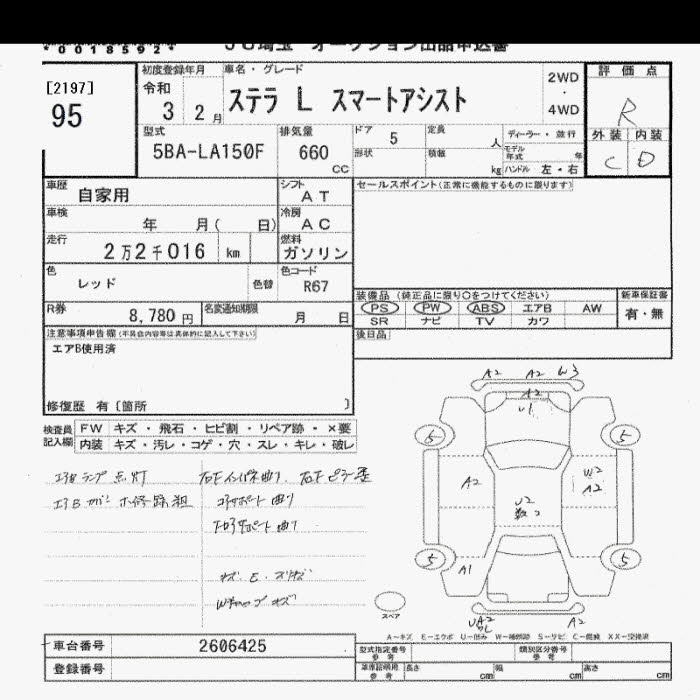 *0018592*
JU埼玉 オークション出品申込書
[2197]
95
初度登録年月
令和
3 2月
車名・グレード
ステラ L スマートアシスト
2WD
・
4WD
評価点
R
外装 内装
C D
型式
5BA-LA150F
排気量
660
CC
ドア 5
定員 人
形状
積載 kg
ディーラー・並行
モデル年式 年
ハンドル 左・右
車歴 自家用
シフト AT
セールスポイント(正常に機能するものに限ります)
車検 年 月( 日)
冷房 AC
走行 2万2千016 km
燃料 ガソリン
色 レッド
色替
色コード R67
装備品 (純正品に限り○をつけてください)
PS PW ABS エアB AW
SR ナビ TV カワ
新車保証書
有・無
R券 8,780円
名変通知期限 月 日
後日品
注意事項申告欄(不具合内容等は具体的に記入して下さい)
エアB使用済
修復歴 有〔箇所 〕
検査員記入欄
FW キズ・飛石・ヒビ割・リペア跡・×要
内装 キズ・汚レ・コゲ・穴・スレ・キレ・破レ
エアBランプ点灯
エアBカバー
コアサポート曲り
キズ・E・スリキズ
A2 A2 W3
A2
U1
5 5
A2
U2
A2
U2
数コ
5 5
A1
UA2
A2
スペア
A－キズ E－エクボ U－凹み W－補修跡 S－サビ C－腐蝕 XX－交換済
車台番号 2606425
登録番号
型式指定番号
参考
類別区分番号
参考
車庫証明用
参考
長さ cm
幅 cm
高さ cm